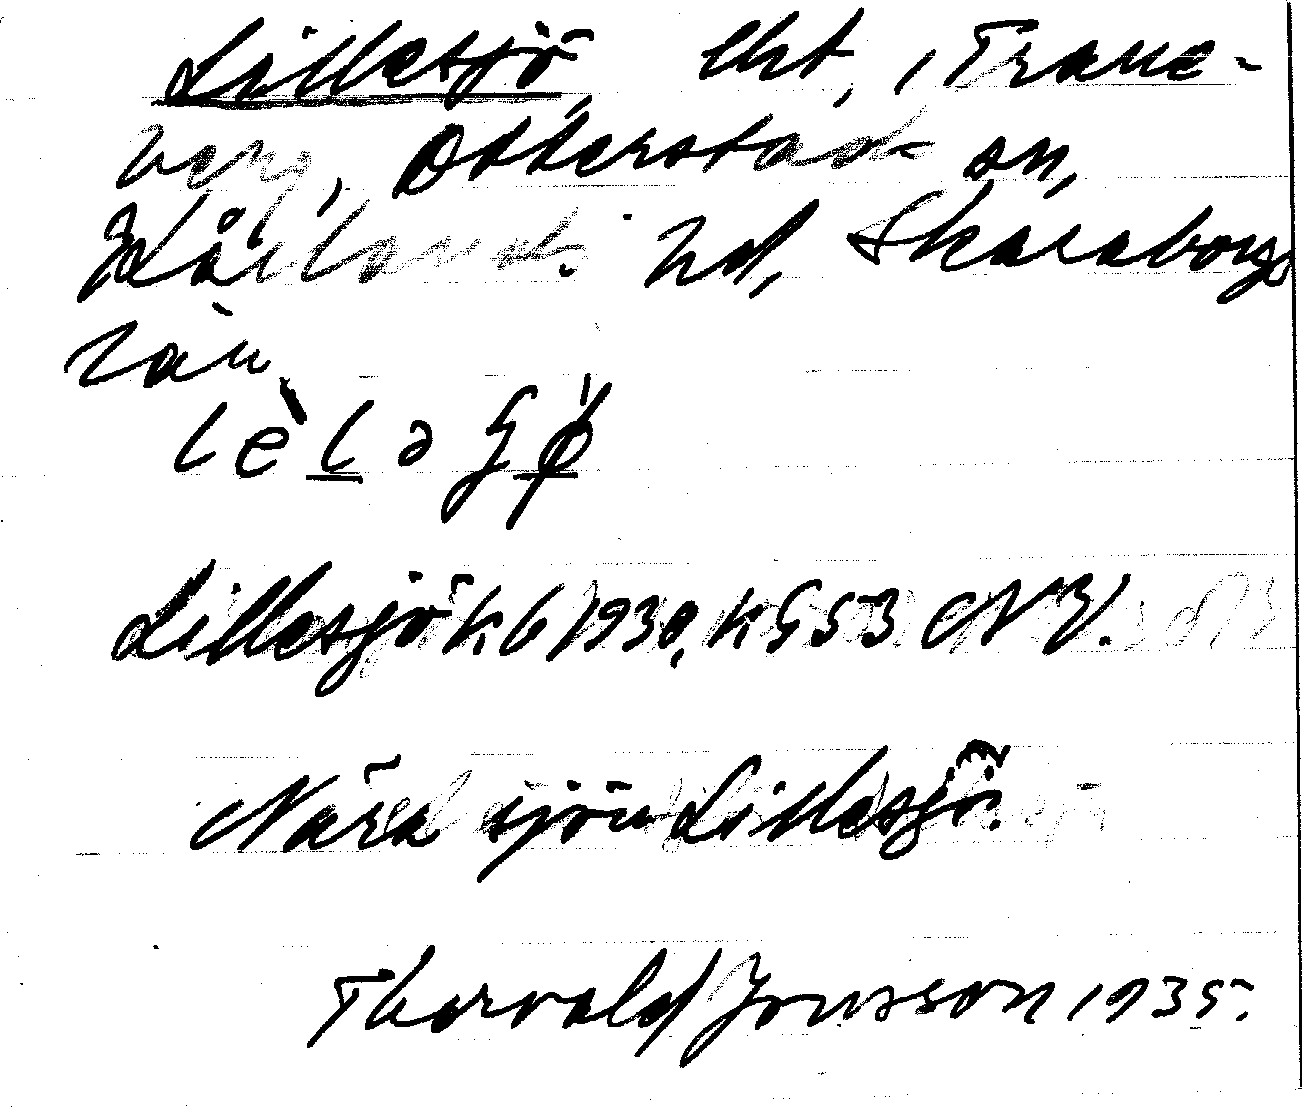 Lillesjö, lht, i Trane-
berg, Otterstad sn,
Kållands hd, Skaraborgs
län.
Lillesjö K 6 1930, K G 53 NV.
Nära sjön Lillesjö.
Thorvald Jonsson 1935.